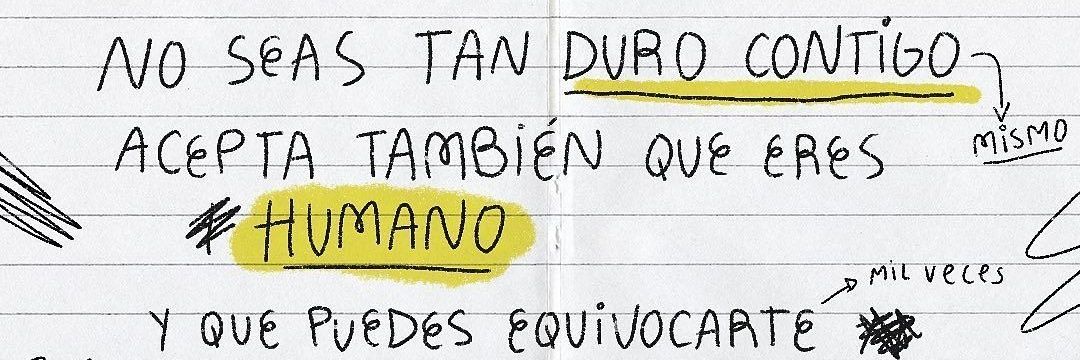 NO SEAS TAN DURO CONTIGO
MISMO
ACEPTA TAMBIÉN QUE ERES
HUMANO
MIL VECES
Y QUE PUEDES EQUIVOCARTE